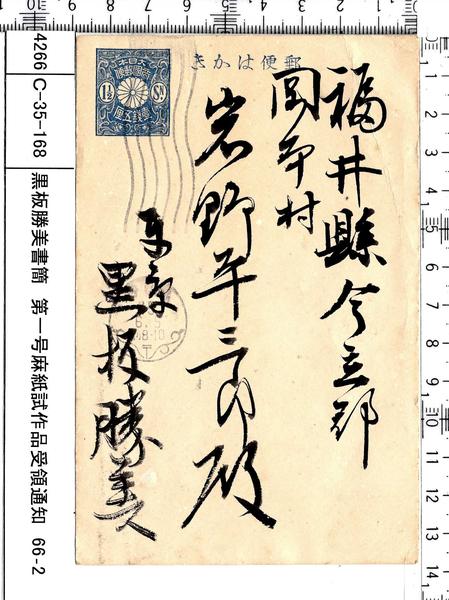 4266 C-35-168 黒板勝美書簡 第一号麻紙試作品受領通知 66-2
郵便はかき
大日本
帝國郵便
1½ Sn
壹錢五厘
福井縣今立郡
岡本村
岩野平三郎殿
東京
黒板勝美